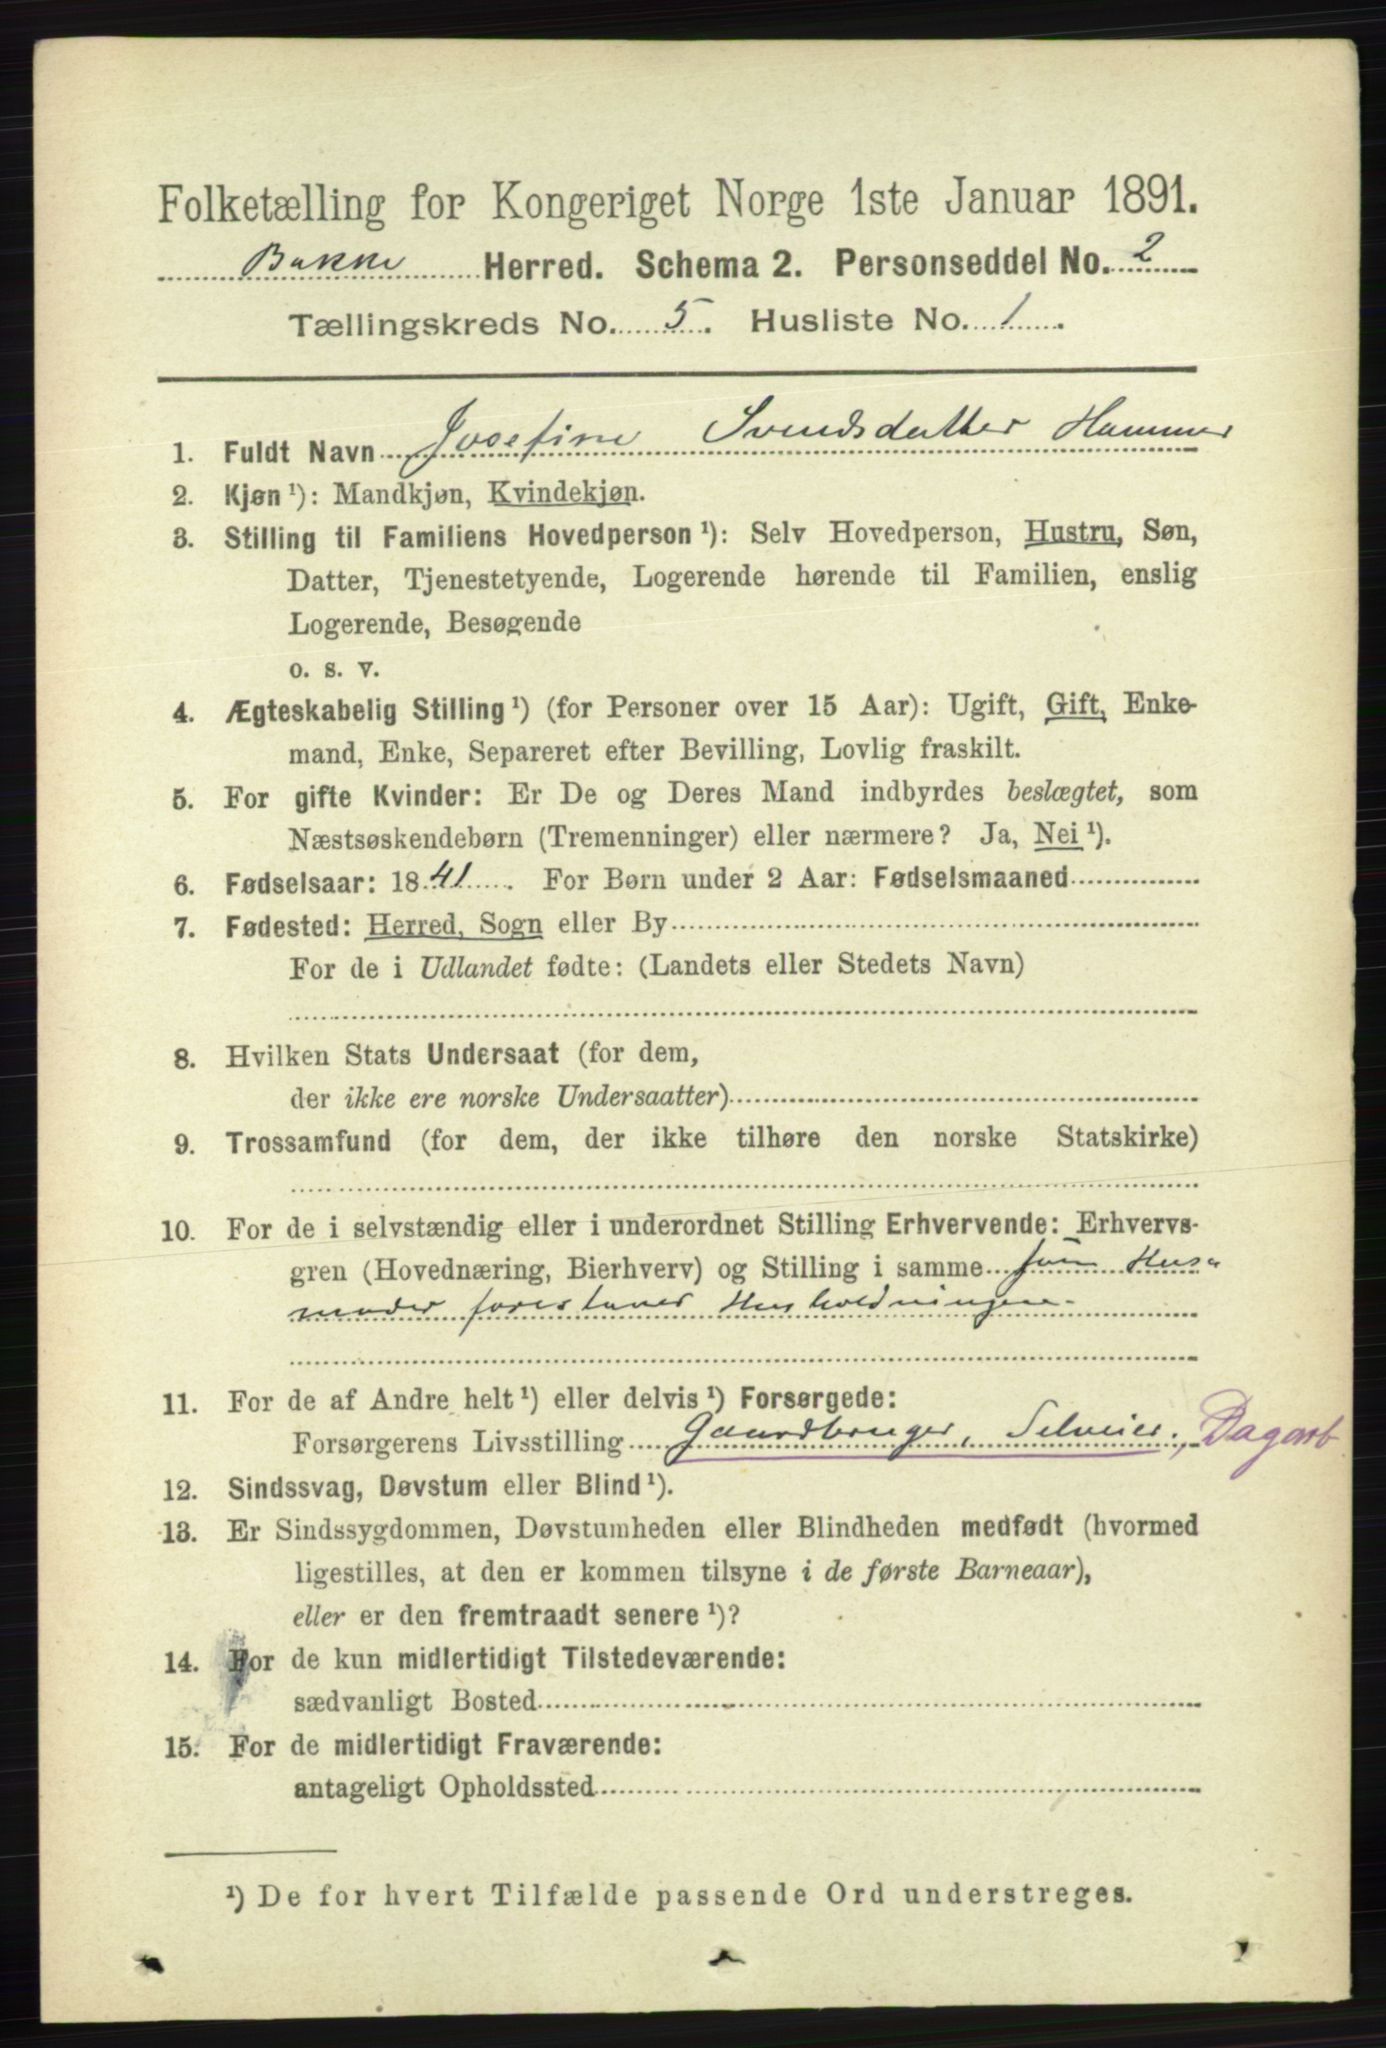 Folketælling for Kongeriget Norge 1ste Januar 1891.
Bakke Herred. Schema 2. Personseddel No. 2
Tællingskreds No. 5. Husliste No. 1.
1. Fuldt Navn Josefine Svendsdatter Hammer
2. Kjøn ¹): Mandkjøn, Kvindekjøn.
3. Stilling til Familiens Hovedperson ¹): Selv Hovedperson, Hustru, Søn,
Datter, Tjenestetyende, Logerende hørende til Familien, enslig
Logerende, Besøgende
o. s. v.
4. Ægteskabelig Stilling ¹) (for Personer over 15 Aar): Ugift, Gift, Enke-
mand, Enke, Separeret efter Bevilling, Lovlig fraskilt.
5. For gifte Kvinder: Er De og Deres Mand indbyrdes beslægtet, som
Næstsøskendebørn (Tremenninger) eller nærmere? Ja, Nei ¹).
6. Fødselsaar: 1841. For Børn under 2 Aar: Fødselsmaaned
7. Fødested: Herred, Sogn eller By
For de i Udlandet fødte: (Landets eller Stedets Navn)
8. Hvilken Stats Undersaat (for dem,
der ikke ere norske Undersaatter)
9. Trossamfund (for dem, der ikke tilhøre den norske Statskirke)
10. For de i selvstændig eller i underordnet Stilling Erhvervende: Erhvervs-
gren (Hovednæring, Bierhverv) og Stilling i samme som Hus-
moder forestaaer Husholdningen.
11. For de af Andre helt ¹) eller delvis ¹) Forsørgede:
Forsørgerens Livsstilling Gaardbruger, Selveier., Dagarb
12. Sindssvag, Døvstum eller Blind ¹).
13. Er Sindssygdommen, Døvstumheden eller Blindheden medfødt (hvormed
ligestilles, at den er kommen tilsyne i de første Barneaar),
eller er den fremtraadt senere ¹)?
14. For de kun midlertidigt Tilstedeværende:
sædvanligt Bosted
15. For de midlertidigt Fraværende:
antageligt Opholdssted
¹) De for hvert Tilfælde passende Ord understreges.